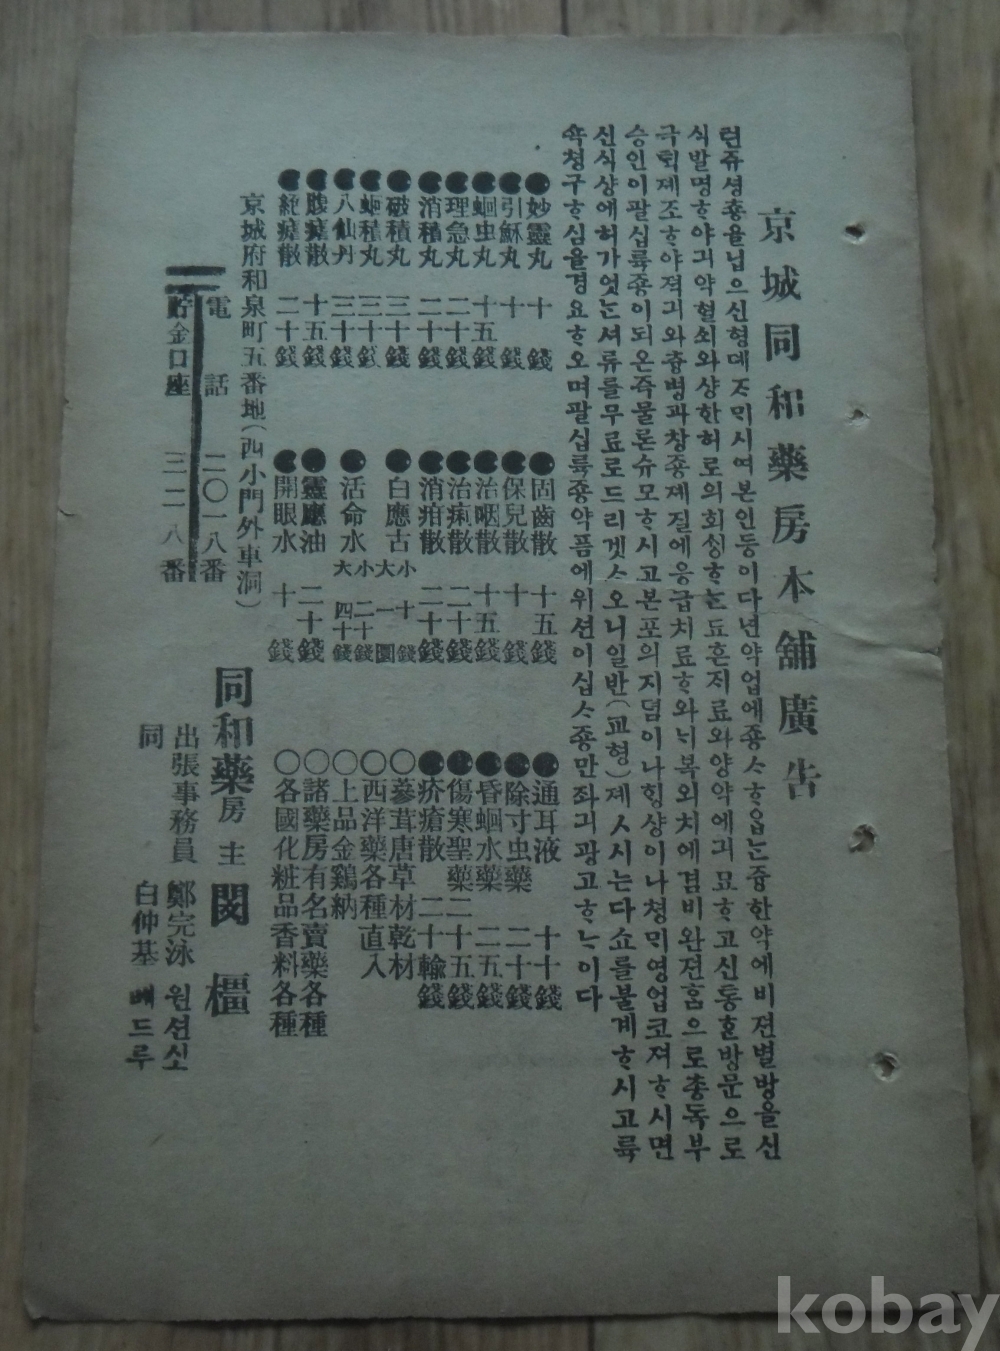 京城同和藥房本舖廣告
련쥬셩춍을닙으신형뎨ᄌᆞᄆᆡ시여본인등이다년약업에죵ᄉᆞᄒᆞ옵ᄂᆞᆫ즁한약에비젼별방을신
식발명ᄒᆞ야ᄀᆡ약혈쇠와샹한허로의회싱ᄒᆞᄂᆞᆫ됴흔ᄌᆡ료와양약에긔묘ᄒᆞ고신통ᄒᆞᆫ방문으로
극력졔조ᄒᆞ야젹긔와츙병과창죵졔질에응급치료ᄒᆞ와ᄂᆡ복외치에겸비완젼ᄒᆞᆷ으로춍독부
승인이팔십륙죵이되온즉물론슈모ᄒᆞ시고본포의지뎜이나ᄒᆡᆼ샹이나쳥ᄆᆡ영업코져ᄒᆞ시면
신식샹에허가엇ᄂᆞᆫ셔류를무료로드리겟ᄉᆞ오니일반(교형)졔시ᄂᆞᆫ다쇼를불계ᄒᆞ시고륙
쇽쳥구ᄒᆞ심을경요ᄒᆞ오며팔십륙죵약픔에위션이십ᄉᆞ죵만좌긔광고ᄒᆞᄂᆞ이다
●妙靈丸 十錢
●引穌丸 十錢
●蛔虫丸 十五錢
●理急丸 二十錢
●消積丸 二十錢
●破積丸 三十錢
●蛔積丸 三十錢
●八仙丹 三十錢
●腹瘧散 十五錢
●絶瘧散 二十錢
●固齒散 十五錢
●保兒散 十錢
●治咽散 十五錢
●治痢散 二十錢
●消疳散 二十錢
●白應古 小 十錢 大 一圜
●活命水 小 二十錢 大 四十錢
●靈應油 二十錢
●開眼水 十錢
●通耳液 十錢
●除寸虫藥 二十錢
●昏蛔水藥 二五錢
●傷寒聖藥 二十五錢
●疥瘡散 二十錢
○蔘茸唐草材乾材輸
○西洋藥各種直入
○上品金鷄納
○諸藥房有名賣藥各種
○各國化粧品香料各種
京城府和泉町五番地(西小門外車洞)
電話 二〇一八番
貯金口座 三二八番
同和藥房主 閔橿
出張事務員 鄭完泳 원션시오
同 白仲基 베드루
kobay